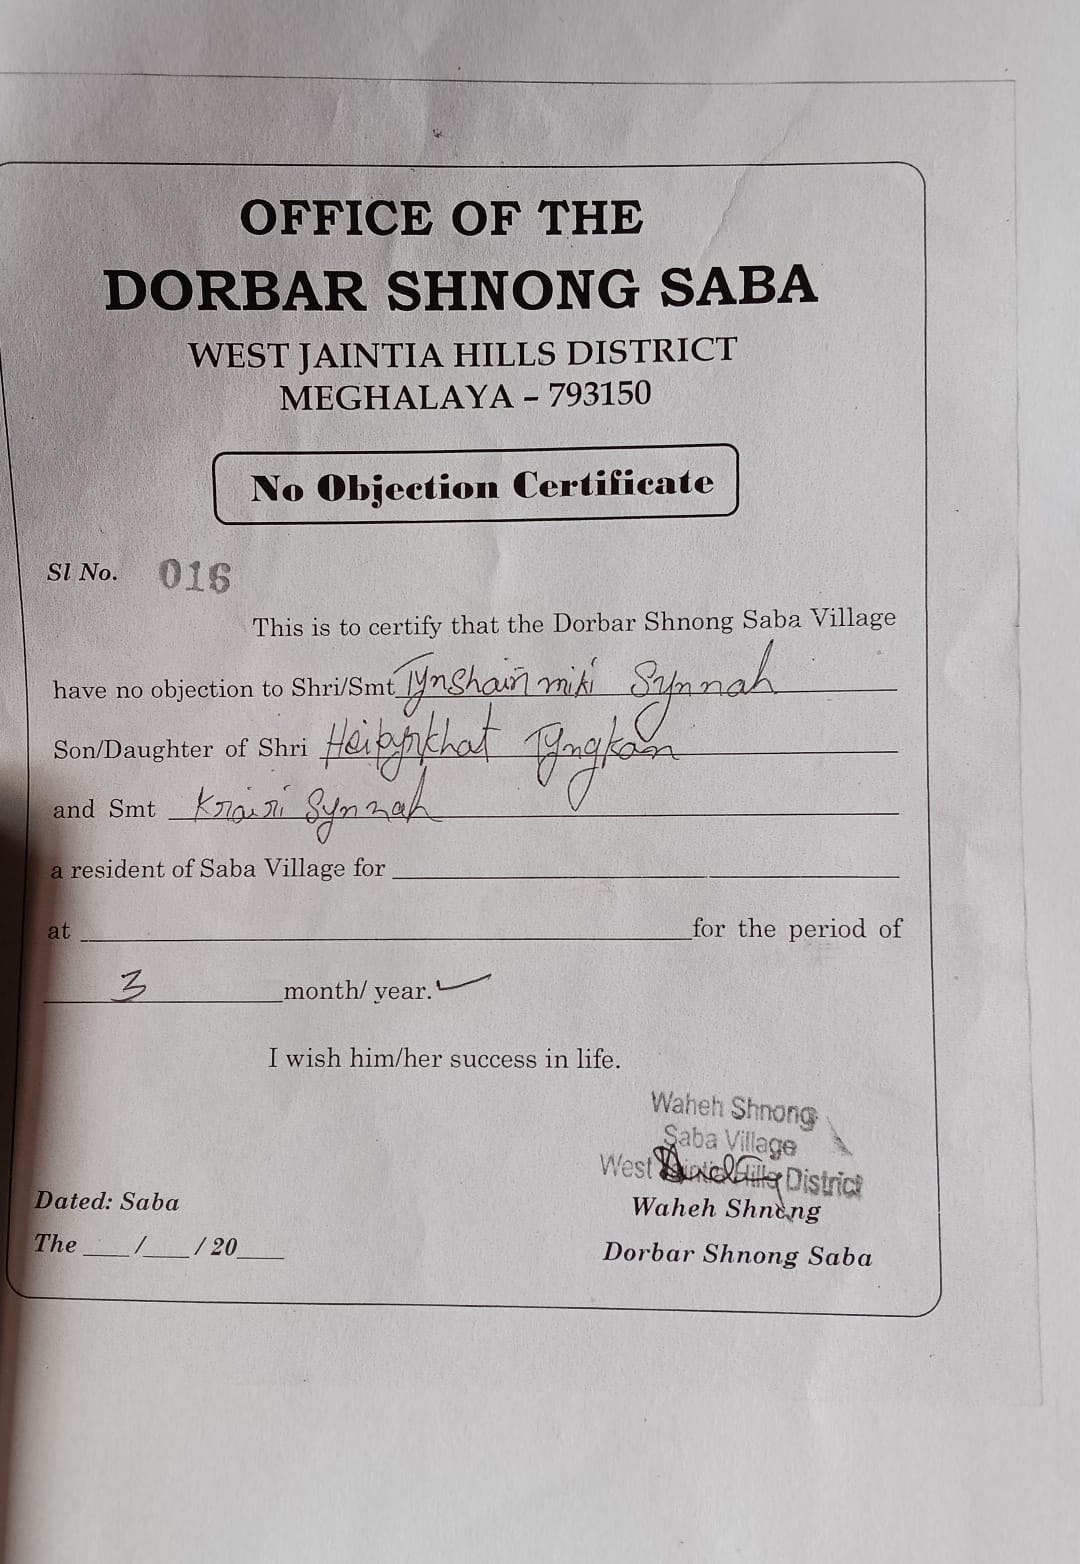 OFFICE OF THE
DORBAR SHNONG SABA
WEST JAINTIA HILLS DISTRICT
MEGHALAYA – 793150
No Objection Certificate
Sl No. 016
This is to certify that the Dorbar Shnong Saba Village
have no objection to Shri/Smt Tynshain miki Synnah
Son/Daughter of Shri Heipynkhat Tyngkan
and Smt Krairi Synnah
a resident of Saba Village for
at for the period of
3 month/ year.
I wish him/her success in life.
Waheh Shnong
Saba Village
West Jaintia Hills District
Dated: Saba
Waheh Shnong
The ___/___/20___
Dorbar Shnong Saba